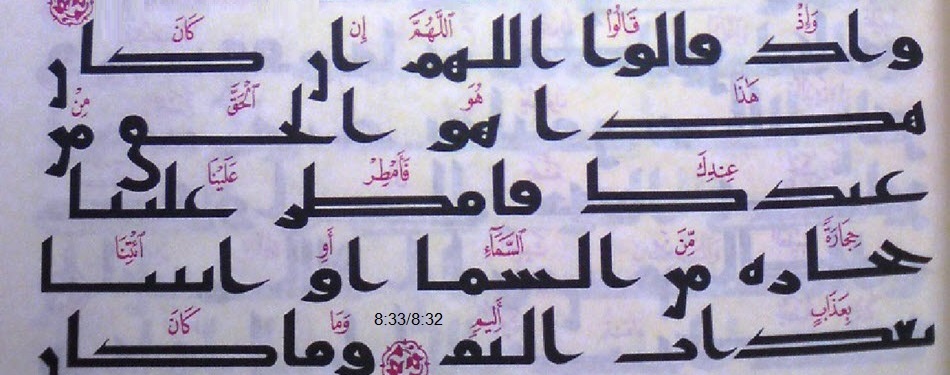 وَإِذْ قَالُوا۟ ٱللَّهُمَّ إِن كَانَ
واد قالوا اللهم ان كان
هَٰذَا هُوَ ٱلْحَقَّ مِنْ
هدا هو الحق من
عِندِكَ فَأَمْطِرْ عَلَيْنَا
عندك فامطر علينا
حِجَارَةً مِّنَ ٱلسَّمَآءِ أَوِ ٱئْتِنَا
حجاره من السما او اىتنا
بِعَذَابٍ أَلِيمٍ 8:33/8:32 وَمَا كَانَ
بعداب اليم وما كان